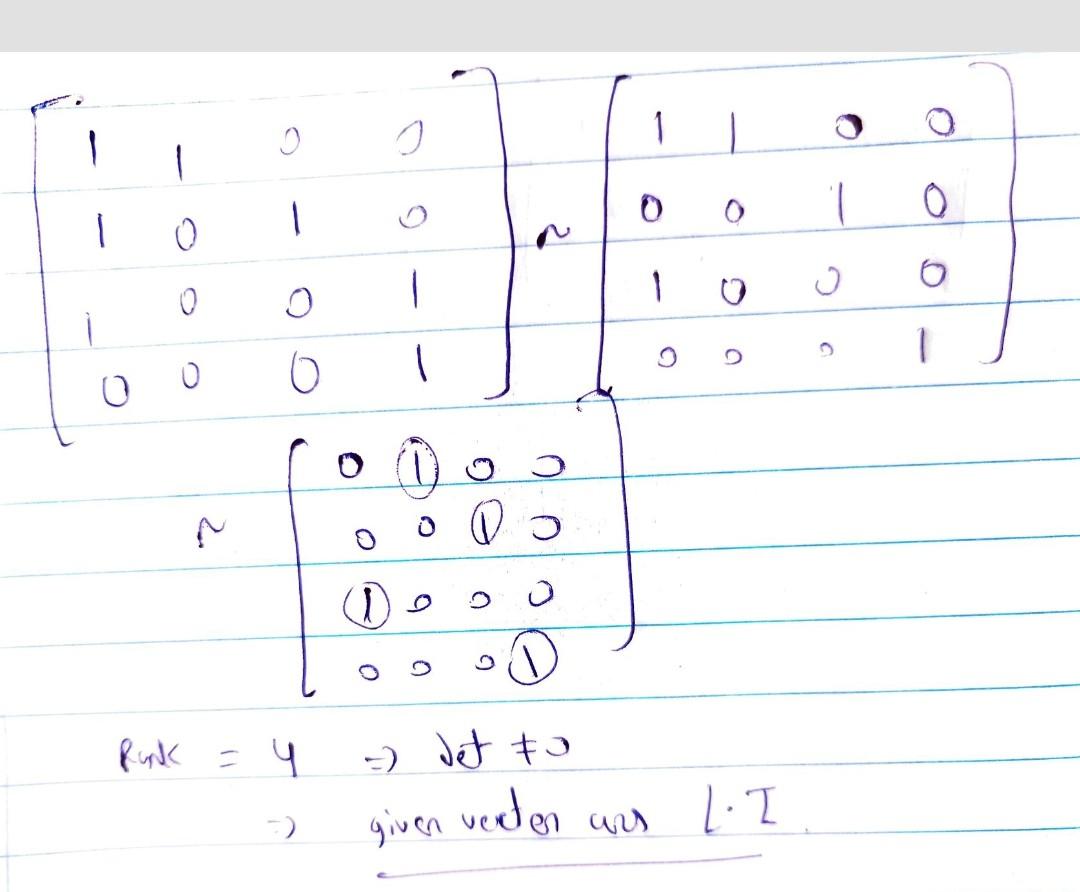 [ 1 1 0 0 ] ~ [ 1 1 0 0 ]
[ 1 0 1 0 ] [ 0 0 1 0 ]
[ 1 0 0 1 ] [ 1 0 0 0 ]
[ 0 0 0 1 ] [ 0 0 0 1 ]
~ [ 0 1 0 0 ]
[ 0 0 1 0 ]
[ 1 0 0 0 ]
[ 0 0 0 1 ]
Rank = 4 => det ≠ 0
=> given vector are L.I